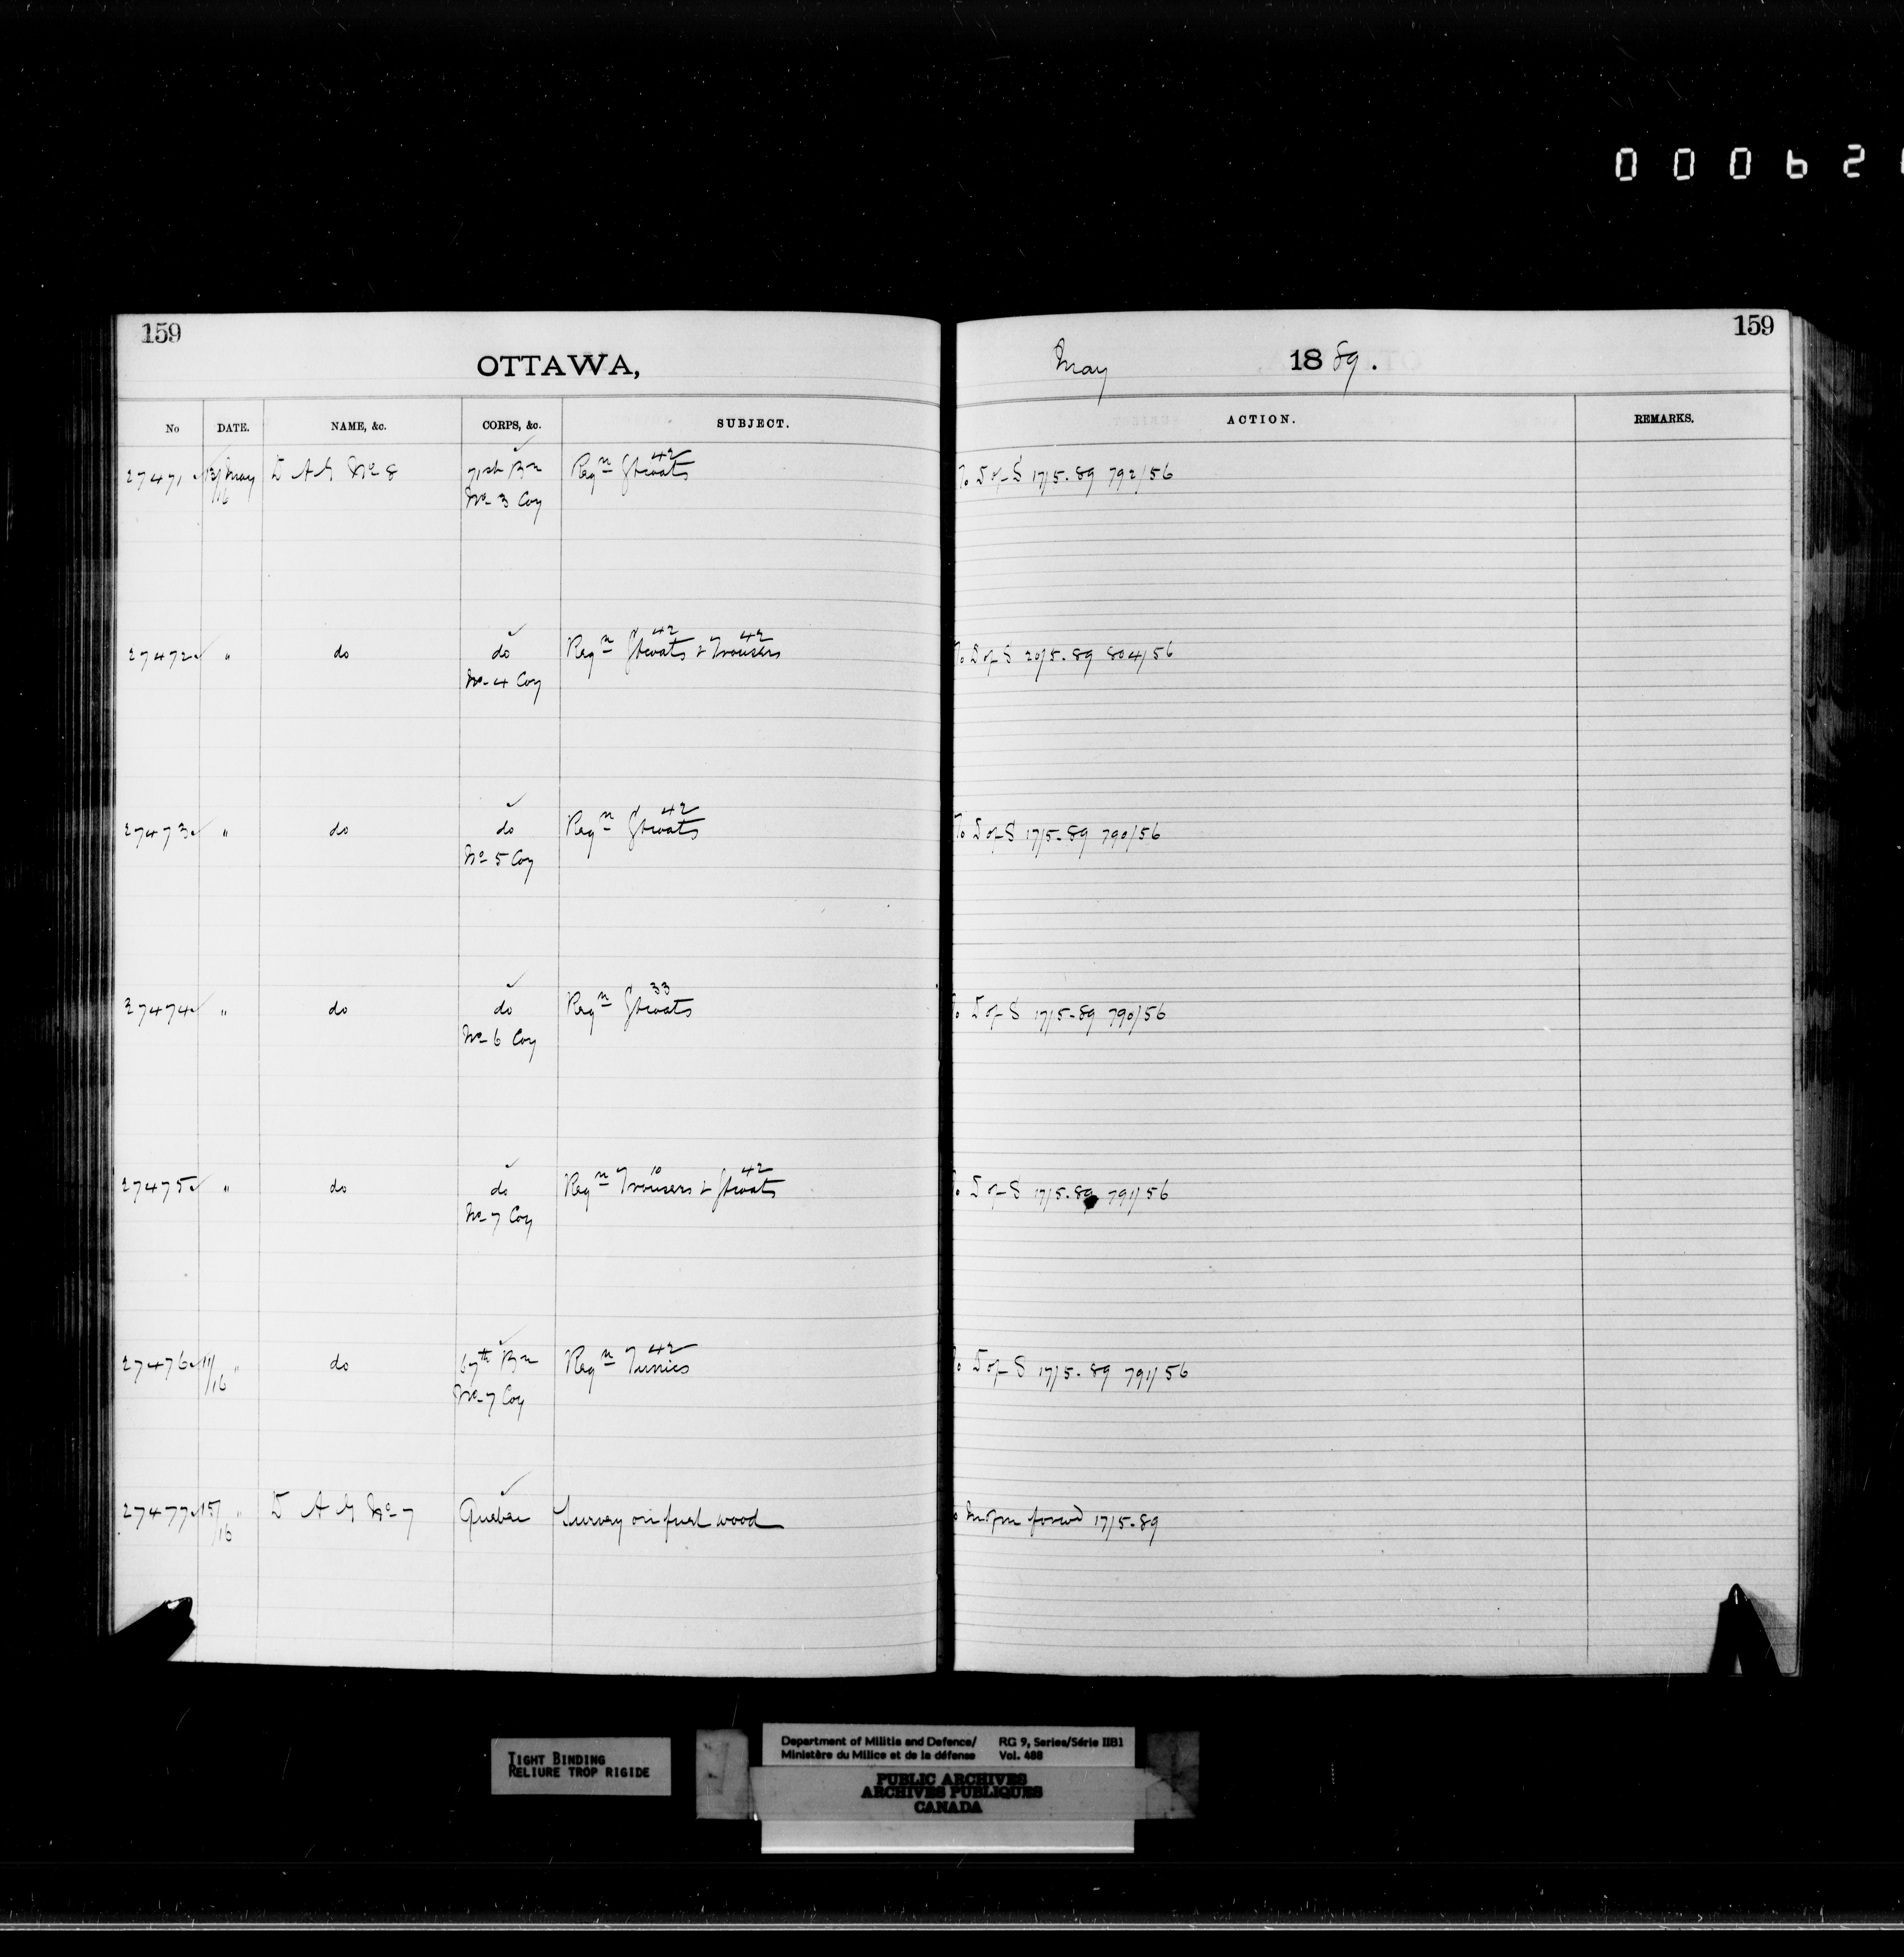 000621
159
159
OTTAWA,
May 1889.
No DATE. NAME, &c. CORPS, &c. SUBJECT. ACTION. REMARKS.
27471 13/16 May D A G No 8 71st Bn Reqn Gtcoats 42 To D of S 17/5.89 792/56
No 3 Coy
27472 " do do Reqn Gtcoats 42 & Trousers 42 To D of S 20/5.89 804/56
No 4 Coy
27473 " do do Reqn Gtcoats 42 To D of S 17/5.89 790/56
No 5 Coy
27474 " do do Reqn Gtcoats 33 To D of S 17/5-89 790/56
No 6 Coy
27475 " do do Reqn Trousers 10 & Gtcoats 42 To D of S 17/5.89 791/56
No 7 Coy
27476 11/16 " do 67th Bn Reqn Tunics 42 To D of S 17/5.89 791/56
No 7 Coy
27477 15/16 " D A G No 7 Quebec Survey on fuel wood forwd 17/5.89
TIGHT BINDING
RELIURE TROP RIGIDE
Department of Militia and Defence/
Ministère du Milice et de la défense
RG 9, Series/Série IIB1
Vol. 488
PUBLIC ARCHIVES
ARCHIVES PUBLIQUES
CANADA